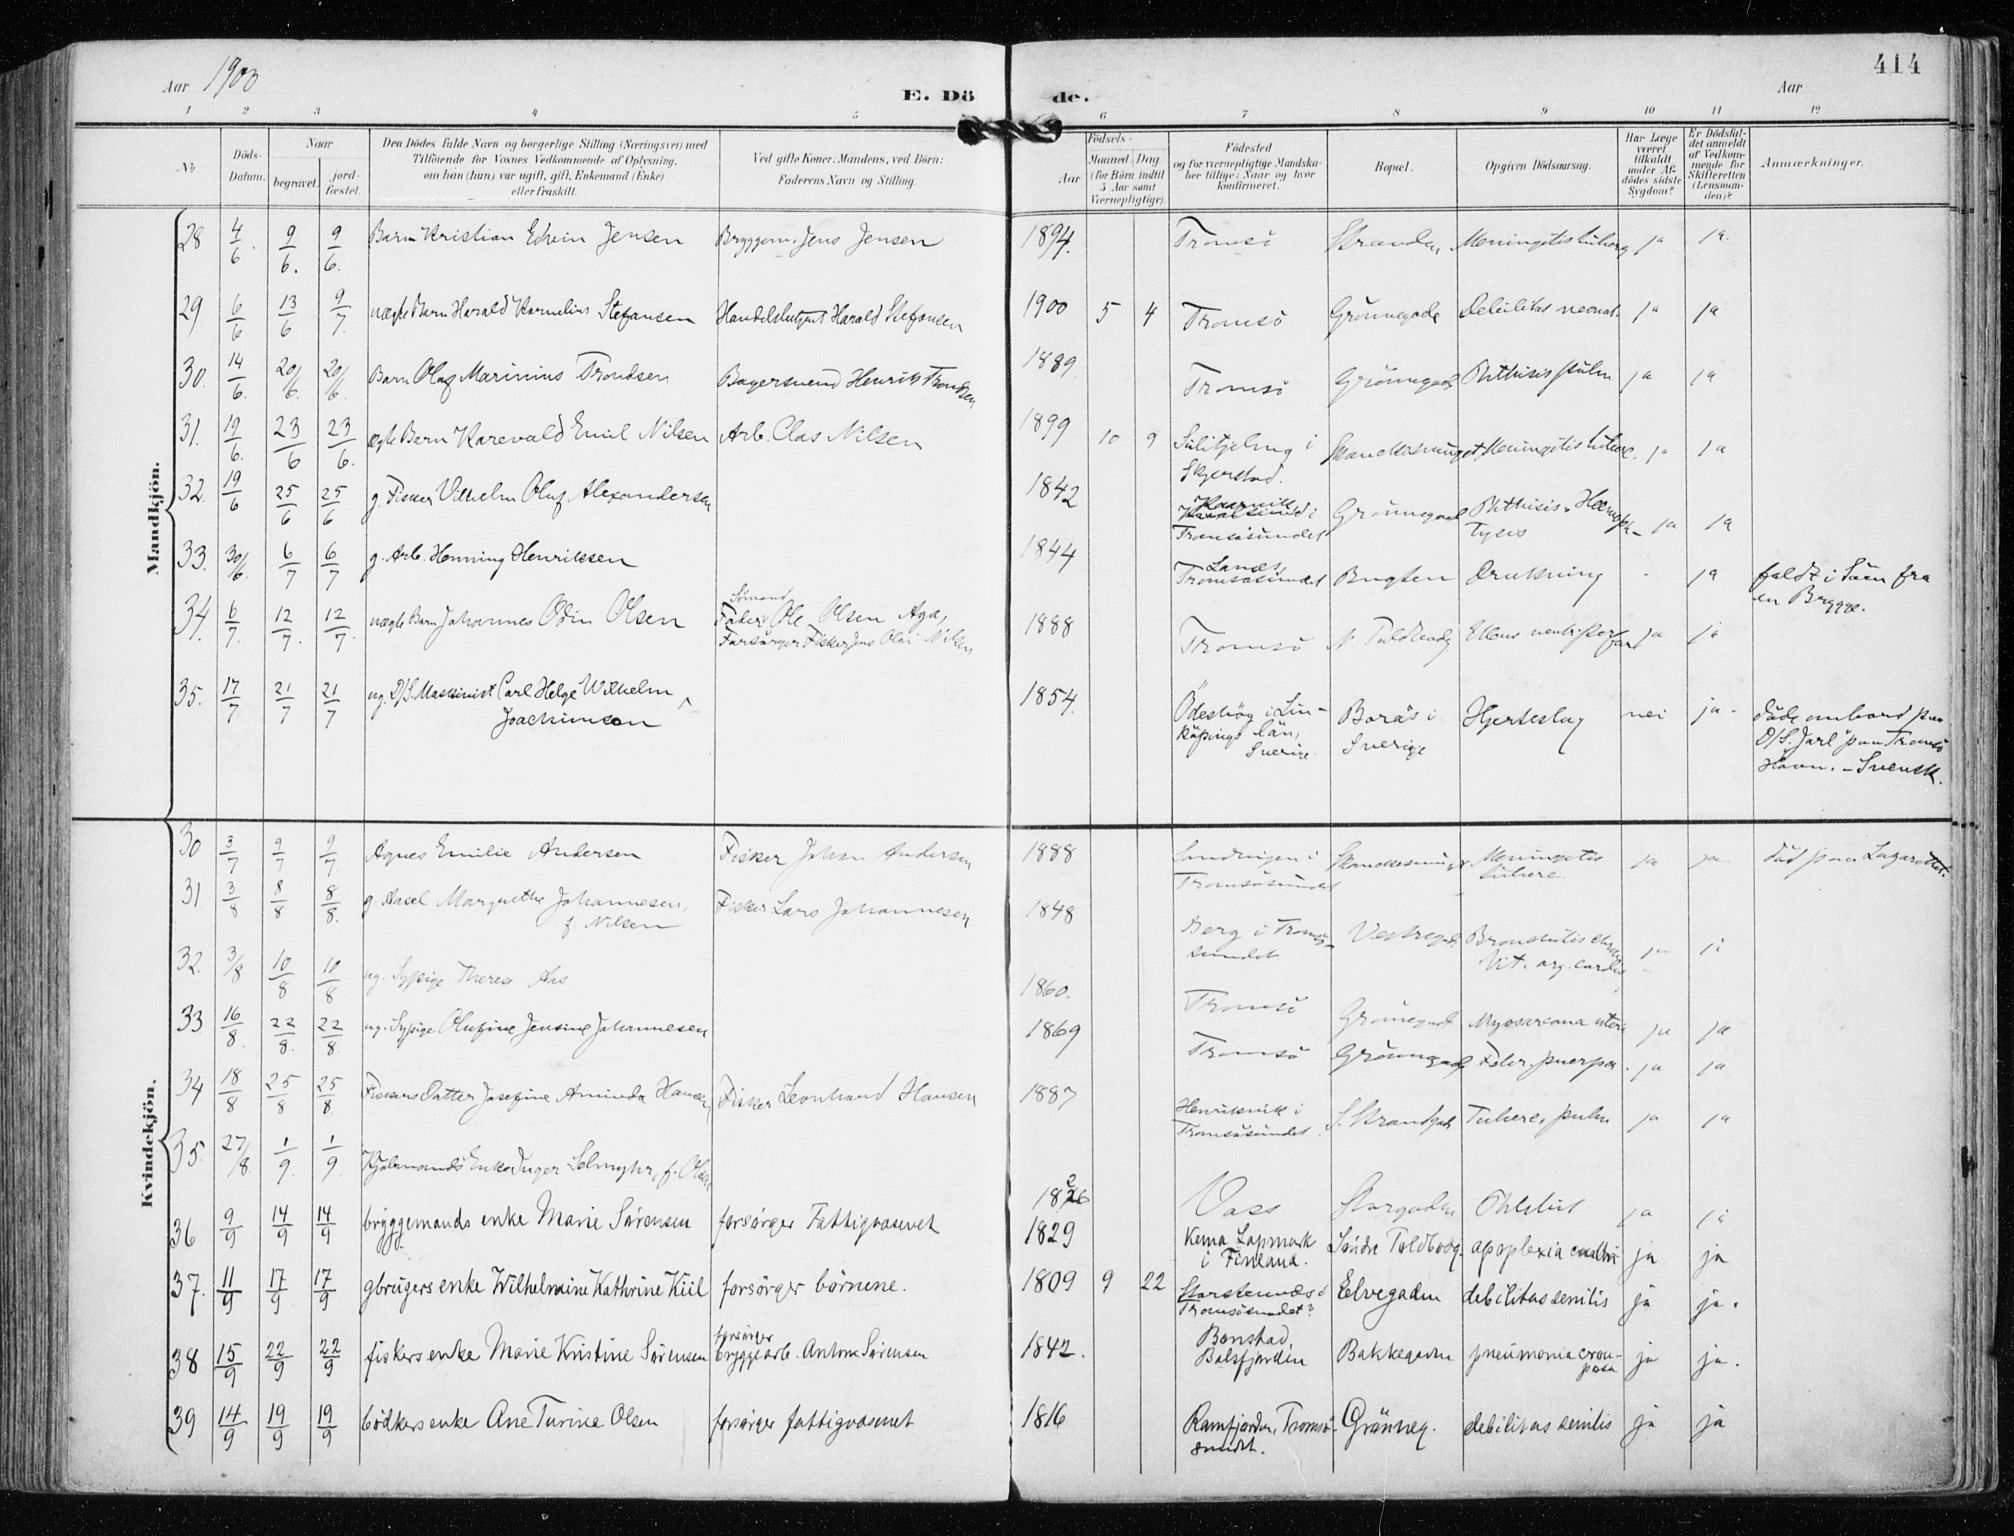 Aar 1900
E. Döde.
Aar
414
1 2 3 4 5 6 7 8 9 10 11 12
No.
Döds-Datum.
Naar
begravet.
jord-fæstet.
Den Dödes fulde Navn og borgerlige Stilling (Næringsvei) med
Tilföiende for Voxnes Vedkommende af Oplysning,
om han (hun) var ugift, gift, Enkemand (Enke)
eller fraskilt.
Ved gifte Koner: Mandens, ved Börn:
Faderens Navn og Stilling.
Födsels-
Aar
Maaned. Dag.
(for Börn indtil
5 Aar samt
Værnepligtige).
Födested
og for værnepligtige Mandska-
ber tillige: Naar og hvor
konfirmeret.
Bopæl.
Opgiven Dödsaarsag.
Har Læge
været
tilkaldt
under Af-
dödes sidste
Sygdom?
Er Dödsfal-
det anmeldt
af Vedkom-
mende for
Skifteretten
(Lensman-
den)?
Anmærkninger.
Mandkjön.
28 4/6. 9/6. 9/6. Barn Kristian Edvin Jensen Bryggem. Jens Jensen 1894. Tromsö Stranden Meningitis tuberc. ja ja.
29 6/6 13/6 9/7. uægte Barn Harald Kornelius Stefansen Handelsbetjent Harald Stefansen 1900 5 4 Tromsö Grönnegade Debilitas neonat. ja ja
30. 14/6. 20/6. 20/6. Barn Olaf Marinius Trondsen Bagersvend Henrik Trondsen 1889 Tromsö Grönnegade Phthisis pulm ja ja
31. 19/6. 23/6 23/6. ægte Barn Karevald Emil Nilsen Arb. Olas Nilsen 1899 10 9 Sulitjelma i
Skjerstad. Meningitis tuberc. ja ja
32. 19/6 25/6 25/6 g. Fisker Vilhelm Oluf Alexandersen 1842 Kvalsund i
Tromsösundet Grönnegade Phthisis. Hæmop-
tysis ja ja
33. 30/6. 6/7 6/7 g. Arb. Henning Henriksen 1844 Tromsösundet Bugten Drukning - ja faldt i Söen fra
en Brygge.
34. 6/7. 12/7. 12/7. uægte Barn Johannes Odin Olsen Sömand
Fader: Ole Olsen Aga,
Forsörger Fisker Jens Olai Nilsen 1888 Tromsö N. Toldbodg. ja ja
35. 17/7 21/7 21/7 ug. D/S. Maskinist Carl Helge Wilhelm
Joachimson 1854. Ödeshög i Lin-
köpings län,
Sverige. Borås i
Sverige Hjerteslag nei ja. döde ombord paa
D/S. "Jarl" paa Tromsö
Havn. – Svensk.
Kvindekjön.
30 3/7 9/7 9/7. Agnes Emilie Andersen Fisker Johan Andersen 1888 Tromsösundet Meningitis
tuberc. ja ja död paa Lazarettet.
31 3/8 8/8 8/8. g. Margrethe Johannesen,
f. Nilsen Fisker Lars Johannesen 1848 Berg i Tromsö-
sundet Vestregade Vit. org. cordis
32. 3/8 10/8 10/8 ug. Sypige Therese Aas 1860. Tromsö Grönnegade Myosarcoma uteri ja ja
33 16/8. 22/8. 22/8. ug. Sypige Olufine Jensine Johannesen 1869 Tromsö Grönnegade Febr. puerper. ja ja
34 18/8 25/8 25/8 Fiskers Datter Josefine Aminda Hansen Fisker Leonhard Hansen 1887 Henriksvik i
Tromsösundet. S. Strandgade Tuberc. pulm ja ja
35. 27/8. 1/9. 1/9. Enke Inger Selmyhr, f. Olsen 1826 Vass Storgaden ja ja
36 9/9 14/9 14/9 bryggemands enke Marie Sørensen forsørger Fattigvæsenet 1829 Kema Lapmark
i Finland. Søndre Toldbodg. apoplexia cerebri ja ja
37. 11/9 17/9 17/9 gbrugers enke Wilhelmine Kathrine Kiil forsørger børnene. 1809 9 22 Storstennæs i
Tromsösundet? Elvegaden debilitas senilis ja ja.
38 15/9 22/9 22/9 fiskers enke Marie Kristine Sørensen forsørger
bryggearb. Anton Sørensen 1842. Balsfjorden Bakkegaden pneumonia crou-
posa ja ja.
39 14/9 19/9 19/9 bødkers enke Ane Turine Olsen forsørger fattigvæsenet 1816 Ramfjorden, Tromsø-
sundet. Grønneg. debilitas senilis ja ja